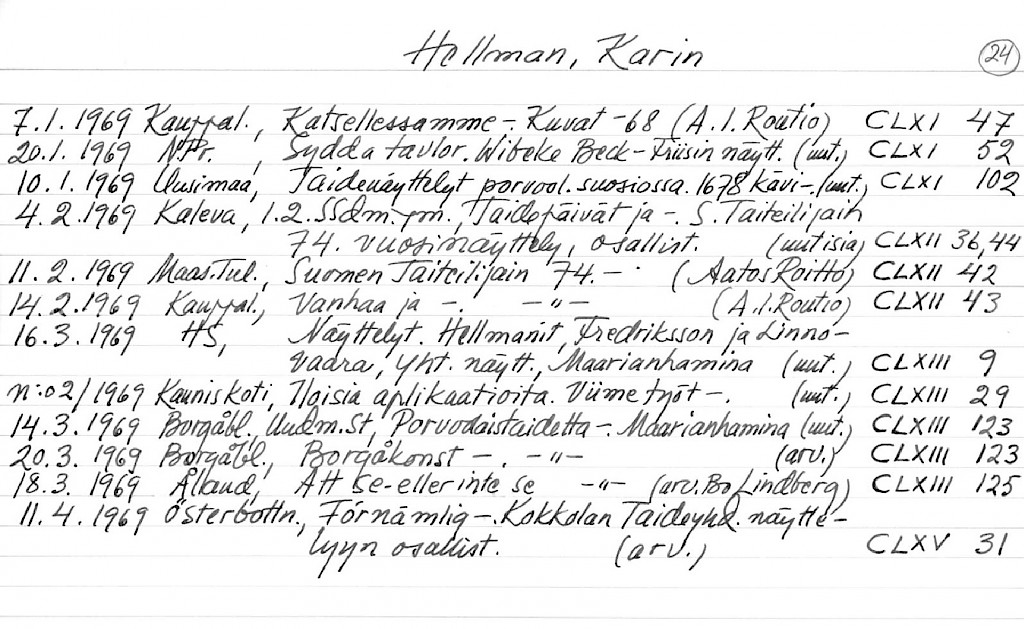 Hellman, Karin 24
7.1.1969 Kauppal., Katsellessamme -. Kuvat -68 (A.I. Routio) CLXI 47
20.1.1969 N.Pr., Sydda tavlor. Wibeke Beck-Friisin näytt. (uut.) CLXI 52
10.1.1969 Uusimaa, Taidenäyttelyt porvool. suosiossa. 1678 kävi-. (uut.) CLXI 102
4.2.1969 Kaleva, 1.2. SSdm.-pm., Taidepäivät ja -. S. Taiteilijain
74. vuosinäyttely, osallist. (uutisia) CLXII 36,44
11.2.1969 Maas.Tul., Suomen Taiteilijain 74.- (Aatos Roitto) CLXII 42
14.2.1969 Kauppal., Vanhaa ja -. -"- (A.I. Routio) CLXII 43
16.3.1969 HS, Näyttelyt. Hellmanit, Fredriksson ja Linno-
vaara, yht. näytt., Maarianhamina (uut.) CLXIII 9
n:o 2/1969 Kauniskoti, Iloisia aplikaatioita. Viime työt -. (uut.) CLXIII 29
14.3.1969 Borgåbl. Uudm.St, Porvoolaistaidetta -. Maarianhamina (uut.) CLXIII 123
20.3.1969 Borgåbl., Borgåkonst -. -"- (arv.) CLXIII 123
18.3.1969 Åland, Att se-eller inte se -"- (arv. Bo Lindberg) CLXIII 125
11.4.1969 Österbottn., Förnämlig -. Kokkolan Taideyhd. näytte-
lyyn osallist. (arv.) CLXV 31